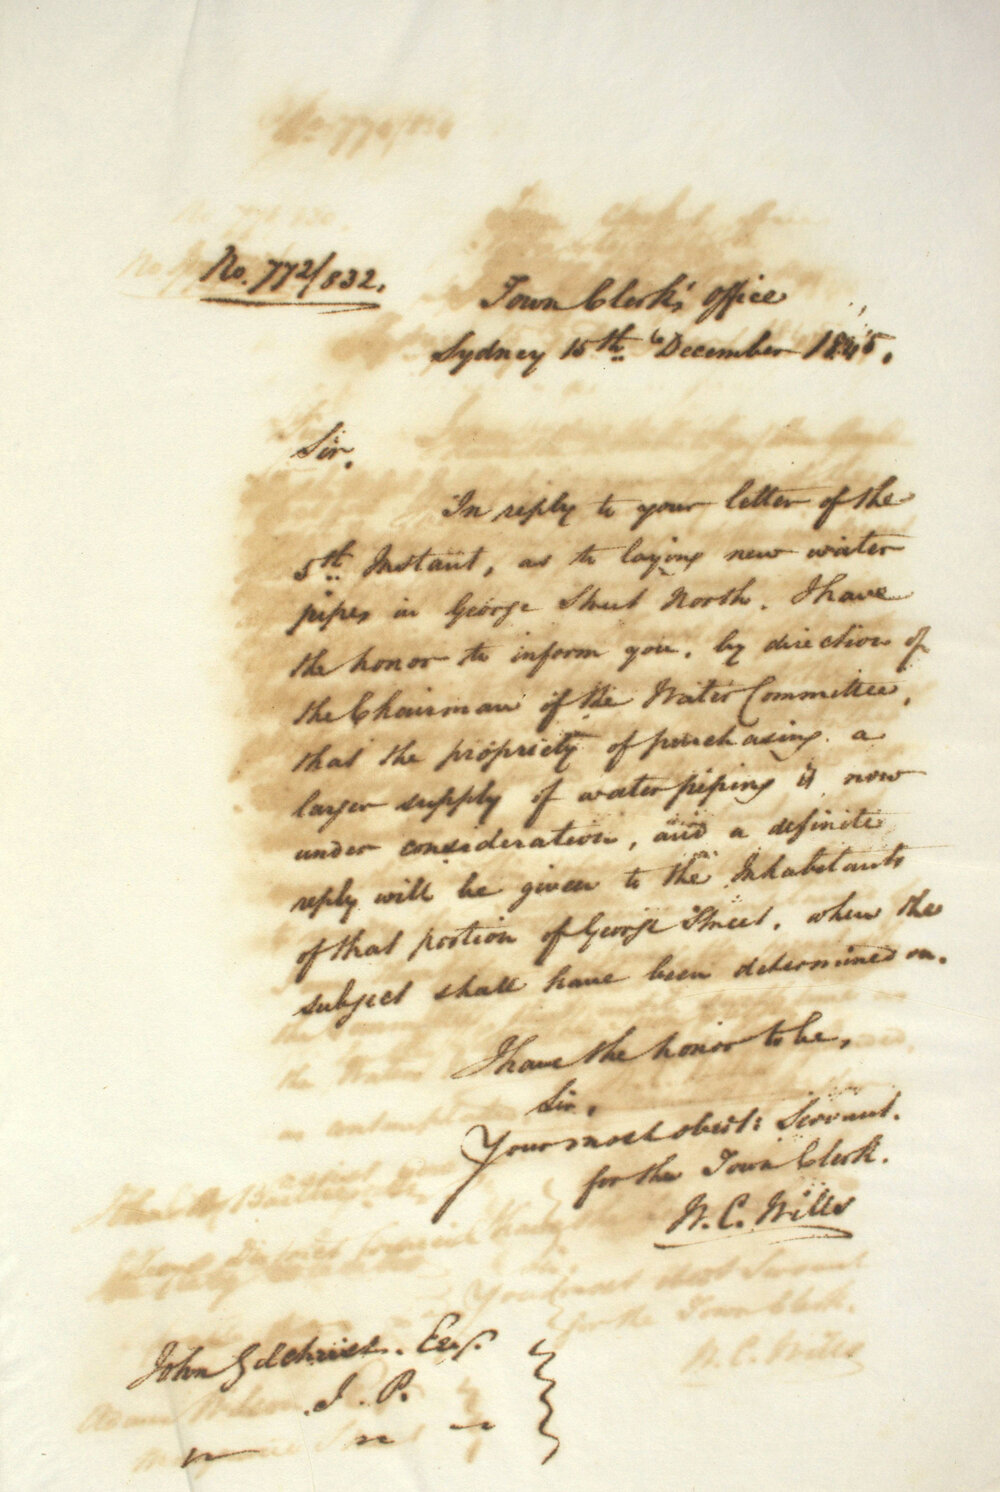 No. 772/832.
Town Clerk's Office
Sydney 15th December 1845.
Sir,
In reply to your letter of the
5th Instant, as to laying new water
pipes in George Street North. I have
the honor to inform you, by direction of
the Chairman of the Water Committee,
that the propriety of purchasing a
larger supply of water piping is now
under consideration, and a definite
reply will be given to the Inhabitants
of that portion of George Street, when the
subject shall have been determined on.
I have the honor to be,
Sir,
Your most obedt: Servant.
for the Town Clerk.
W. C. Wills
John Gilchrist. Esq.
J. P.